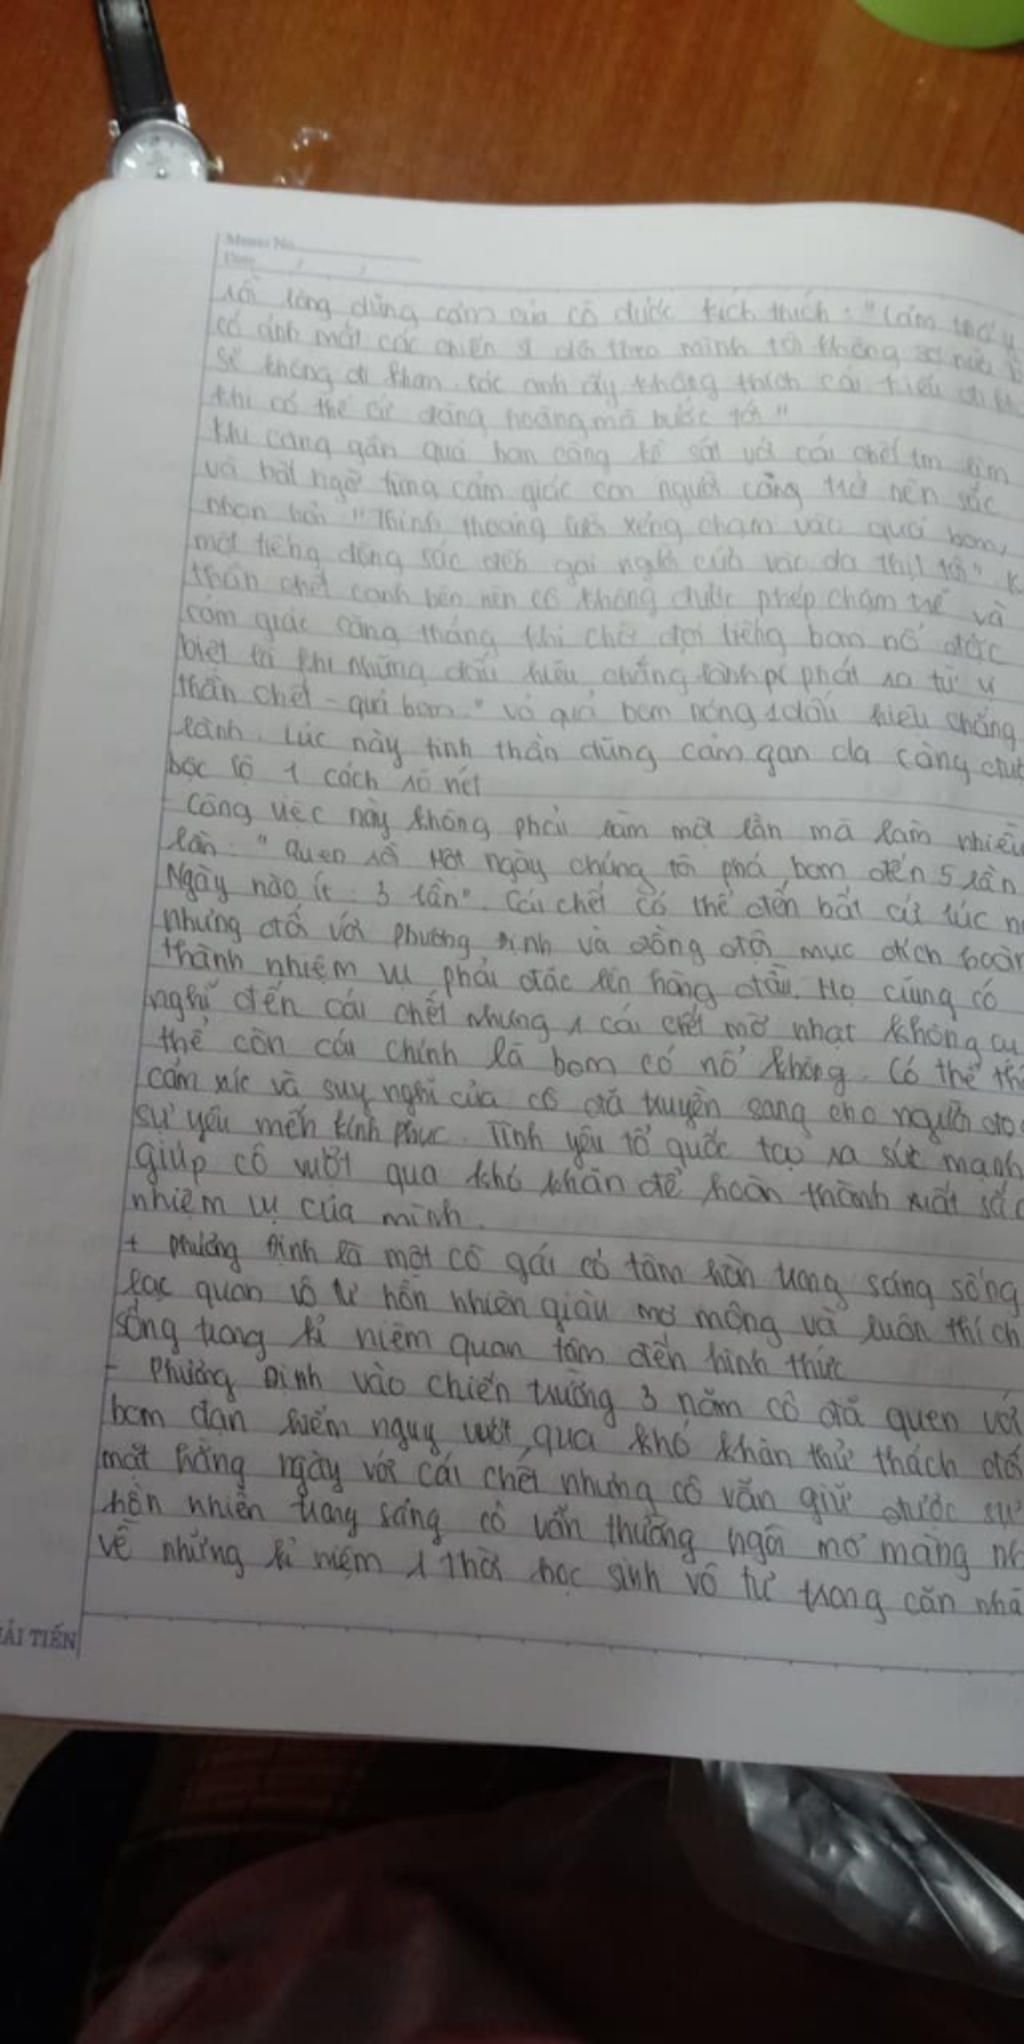 Memo No.
Date / /
rồi lòng dũng cảm của cô được kích thích : "Cảm thấy
có ánh mắt các chiến sĩ dõi theo mình tôi không sợ nữa
sẽ không đi khom. các anh ấy không thích cái kiểu đi
khi có thể cứ đàng hoàng mà bước tới"
khi càng gần quả bom càng kề sát với cái chết im lìm
và bất ngờ từng cảm giác con người càng trở nên sắc
nhọn hơn "Thỉnh thoảng lưỡi xẻng chạm vào quả bom,
một tiếng động sắc đến gai người cứa vào da thịt tôi"
thần chết cạnh bên nên cô không được phép chậm trễ và
cảm giác căng thẳng khi chờ đợi tiếng bom nổ đặc
biệt là khi những dấu hiệu chẳng lành phát ra từ
thần chết - quả bom." vỏ quả bom nóng 1 dấu hiệu chẳng
lành. Lúc này tinh thần dũng cảm gan dạ càng
bộc lộ 1 cách rõ nét
- Công việc này không phải làm một lần mà làm nhiều
lần. "Quen rồi Một ngày chúng tôi phá bom đến 5 lần
Ngày nào ít : 3 lần". Cái chết có thể đến bất cứ lúc
nhưng đối với Phương Định và đồng đội mục đích hoàn
thành nhiệm vụ phải đặc lên hàng đầu. Họ cũng có
nghĩ đến cái chết nhưng 1 cái chết mờ nhạt không cụ
thể còn cái chính là bom có nổ không. Có thể
cảm xúc và suy nghĩ của cô đã truyền sang cho người
sự yêu mến kính phục. Tình yêu tổ quốc tạo ra sức mạnh
giúp cô vượt qua khó khăn để hoàn thành xuất sắc
nhiệm vụ của mình.
+ Phương Định là một cô gái có tâm hồn trong sáng sống
lạc quan vô tư hồn nhiên giàu mơ mộng và luôn thích
sống trong kỉ niệm quan tâm đến hình thức
- Phương Định vào chiến trường 3 năm cô đã quen với
bom đạn hiểm nguy vượt qua khó khăn thử thách đối
mặt hằng ngày với cái chết nhưng cô vẫn giữ được sự
hồn nhiên trong sáng cô vẫn thường ngồi mơ màng
về những kỉ niệm 1 thời học sinh vô tư trong căn nhà
HẢI TIẾN